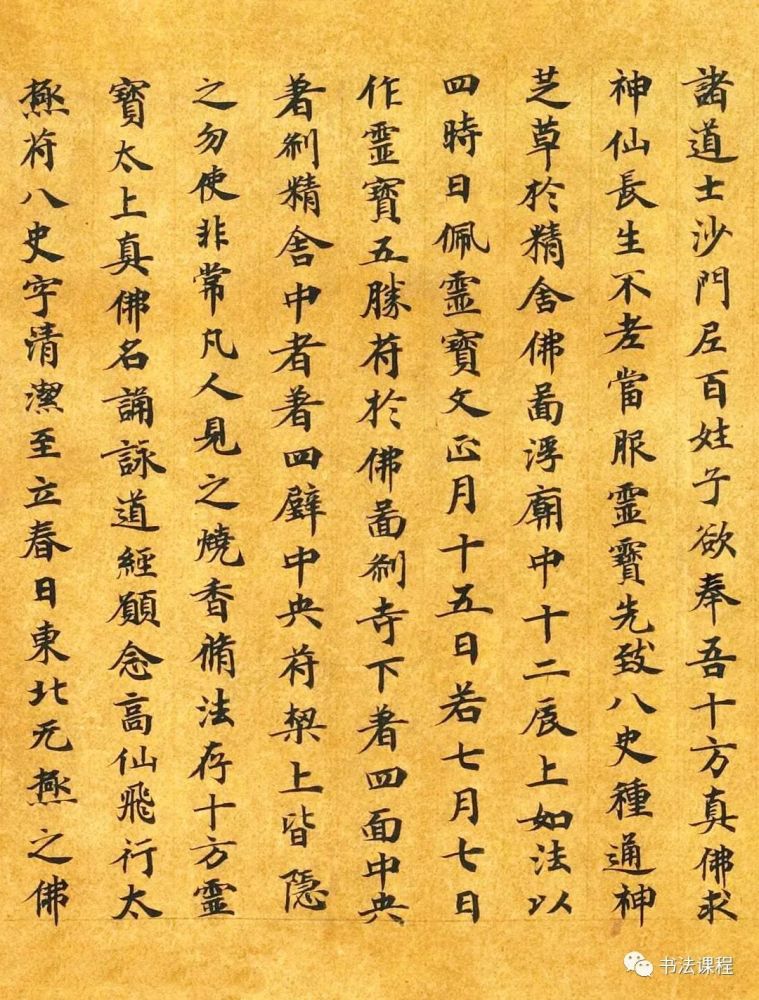 諸道士沙門居百姓子欲奉吾十方真佛求
神仙長生不老當服靈寶先致八史種通神
芝草於精舍佛啚浮廟中十二辰上如法以
四時日佩靈寶文正月十五日若七月七日
作靈寶五勝苻於佛啚刹寺下著四面中央
著刹精舍中者著四壁中央苻梁上皆隱
之勿使非常凡人見之燒香脩法存十方靈
寶太上真佛名誦詠道經願念高仙飛行太
極苻八史字清潔至立春日東北无極之佛
书法课程